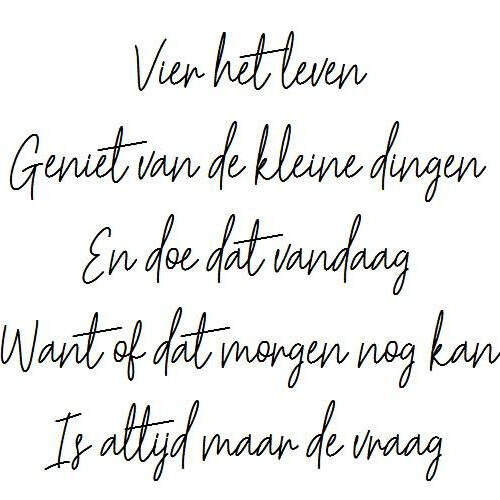 Vier het leven
Geniet van de kleine dingen
En doe dat vandaag
Want of dat morgen nog kan
Is altijd maar de vraag